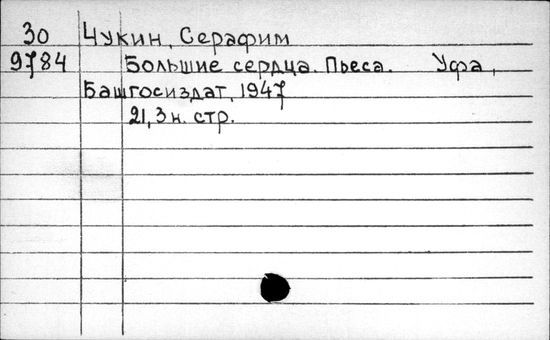 30 Чукин, Серафим
9784 Большие сердца. Пьеса. Уфа,
Башгосиздат, 1947
21, 3 н. стр.